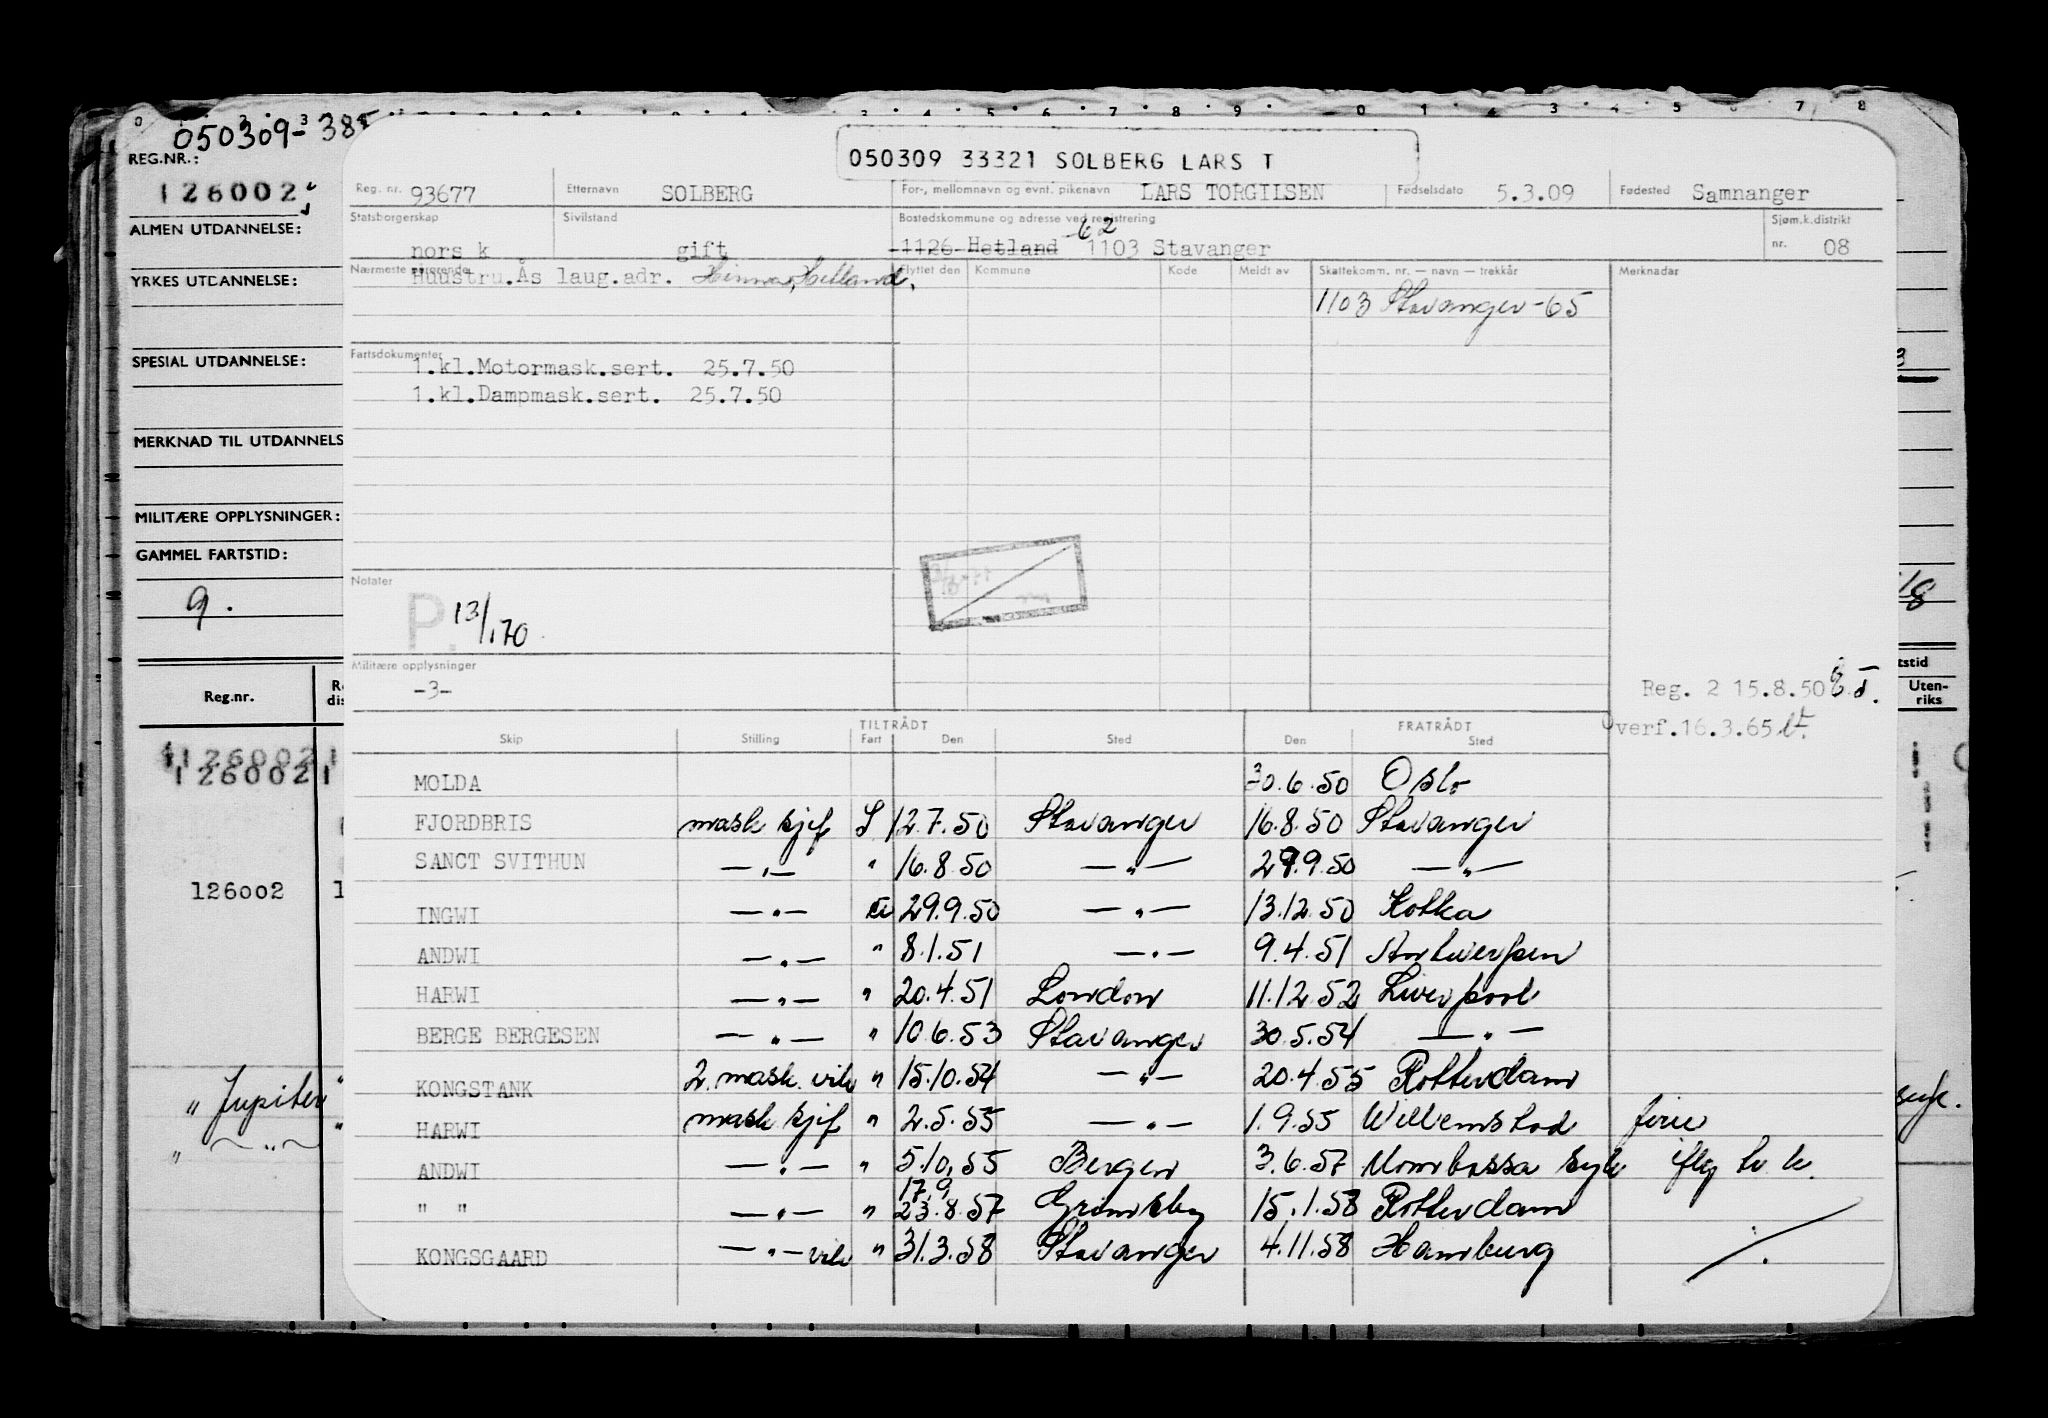 050309-385
REG.NR.:
126002
ALMEN UTDANNELSE:
YRKES UTDANNELSE:
SPESIAL UTDANNELSE:
MERKNAD TIL UTDANNELS
MILITÆRE OPPLYSNINGER:
GAMMEL FARTSTID:
9.
Reg.nr.
126002
126002
126002
" Jupiter "
050309 33321 SOLBERG LARS T
Reg. nr. 93677 Etternavn SOLBERG For-, mellomnavn og evnt. pikenavn LARS TORGILSEN Fødselsdato 5.3.09 Fødested Samnanger
Statsborgerskap Sivilstand Bostedskommune og adresse ved registrering Sjøm.k.distrikt
norsk gift 1126 Hetland -62 1103 Stavanger nr. 08
Nærmeste pårørende Flyttet den Kommune Kode Meldt av Skattekomm. nr. — navn — trekkår Merknader
Huustru.Ås laug.adr. Hinna, Hetland.
1103 Stavanger -65
Fartsdokumenter
1.kl.Motormask.sert. 25.7.50
1.kl.Dampmask.sert. 25.7.50
Notater
P. 13/1.70
Militære opplysninger
-3-
Reg. 2 15.8.50
Overf.16.3.65
TILTRÅDT FRATRÅDT
Skip Stilling Fart Den Sted Den Sted
MOLDA 30.6.50 Oslo
FJORDBRIS mask sjef S 12.7.50 Stavanger 16.8.50 Stavanger
SANCT SVITHUN —"— " 16.8.50 —"— 29.9.50 —"—
INGWI —"— U 29.9.50 —"— 13.12.50 Kotka
ANDWI —"— " 8.1.51 —"— 9.4.51 Antwerpen
HARWI —"— " 20.4.51 London 11.12.52 Liverpool
BERGE BERGESEN —"— " 10.6.53 Stavanger 30.5.54 —"—
KONGSTANK 2. mask. vik " 15.10.54 —"— 20.4.55 Rotterdam
HARWI mask sjef " 2.5.55 —"— 1.9.55 Willemstad ferie
ANDWI —"— " 5.10.55 Bergen 3.6.57 Mombassa syk
" " —"— " 17.9. 23.8.57 Grimsby 15.1.58 Rotterdam
KONGSGAARD —"— vik " 31.3.58 Stavanger 4.11.58 Hamburg
tstid
Uten-
riks